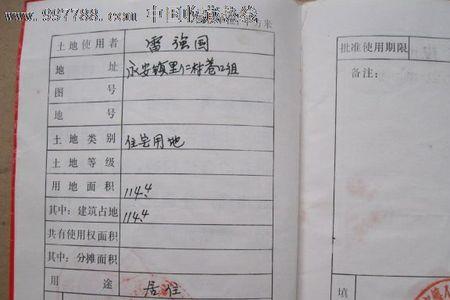 www.997788.com 中国收藏热线
米
土地使用者 雷强国
地 址 永安镇里仁村巷口组
图 号
地 号
土地类别 住宅用地
土地等级
用地面积 114.4
其中：建筑占地 114.4
共有使用权面积
其中：分摊面积
用 途 居住
批准使用期限
备注：
填